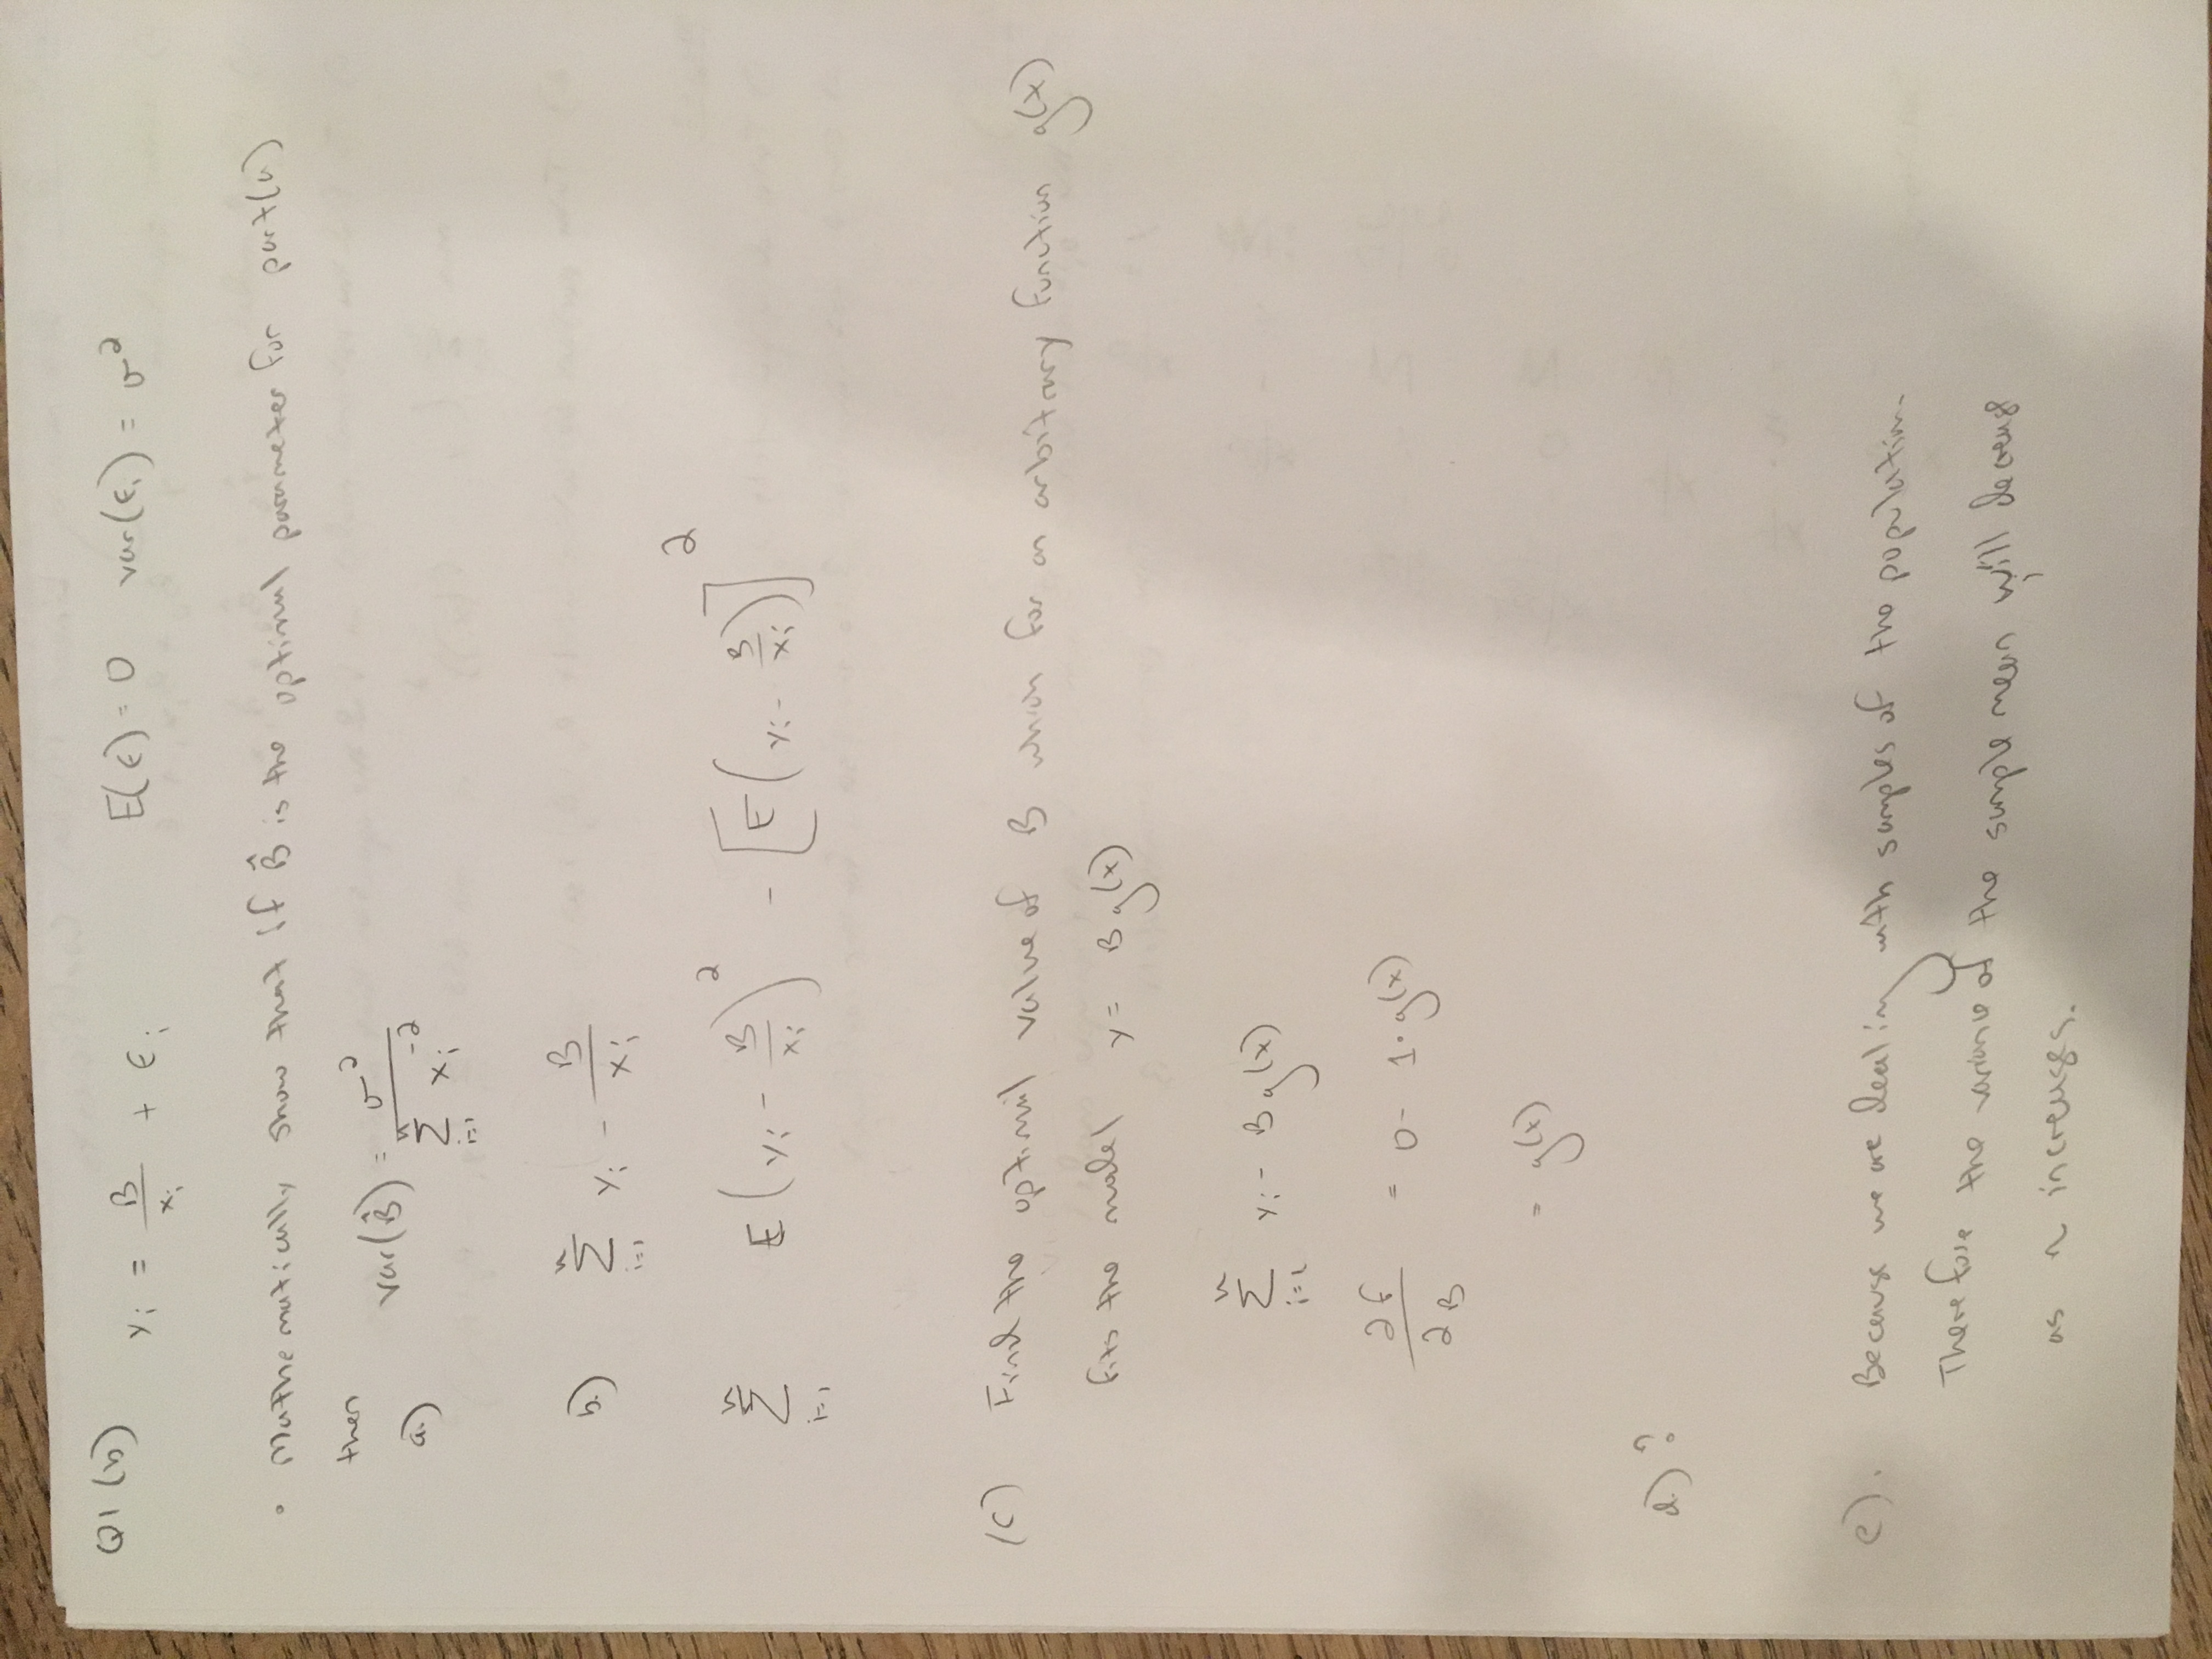 Q1 (b) yᵢ = B/xᵢ + ϵᵢ E(ϵ) = 0 var(ϵᵢ) = σ²
• Mathematically show that if B̂ is the optimal parameter for part(a)
then
a.) var(B̂) = σ² / ∑ᵢ₌₁ⁿ xᵢ⁻²
b.) ∑ᵢ₌₁ⁿ yᵢ - B/xᵢ
∑ᵢ₌₁ⁿ E(yᵢ - B/xᵢ)² - [E(yᵢ - B/xᵢ)]²
(c) Find the optimal value of B which for an arbitrary function g(x)
fits the model y = B g(x)
∑ᵢ₌₁ⁿ yᵢ - B g(x)
∂f/∂B = 0 - 1·g(x)
= g(x)
d.) ?
e). Because we are dealing with samples of the population.
Therefore the variance of the sample mean will decrease
as n increases.